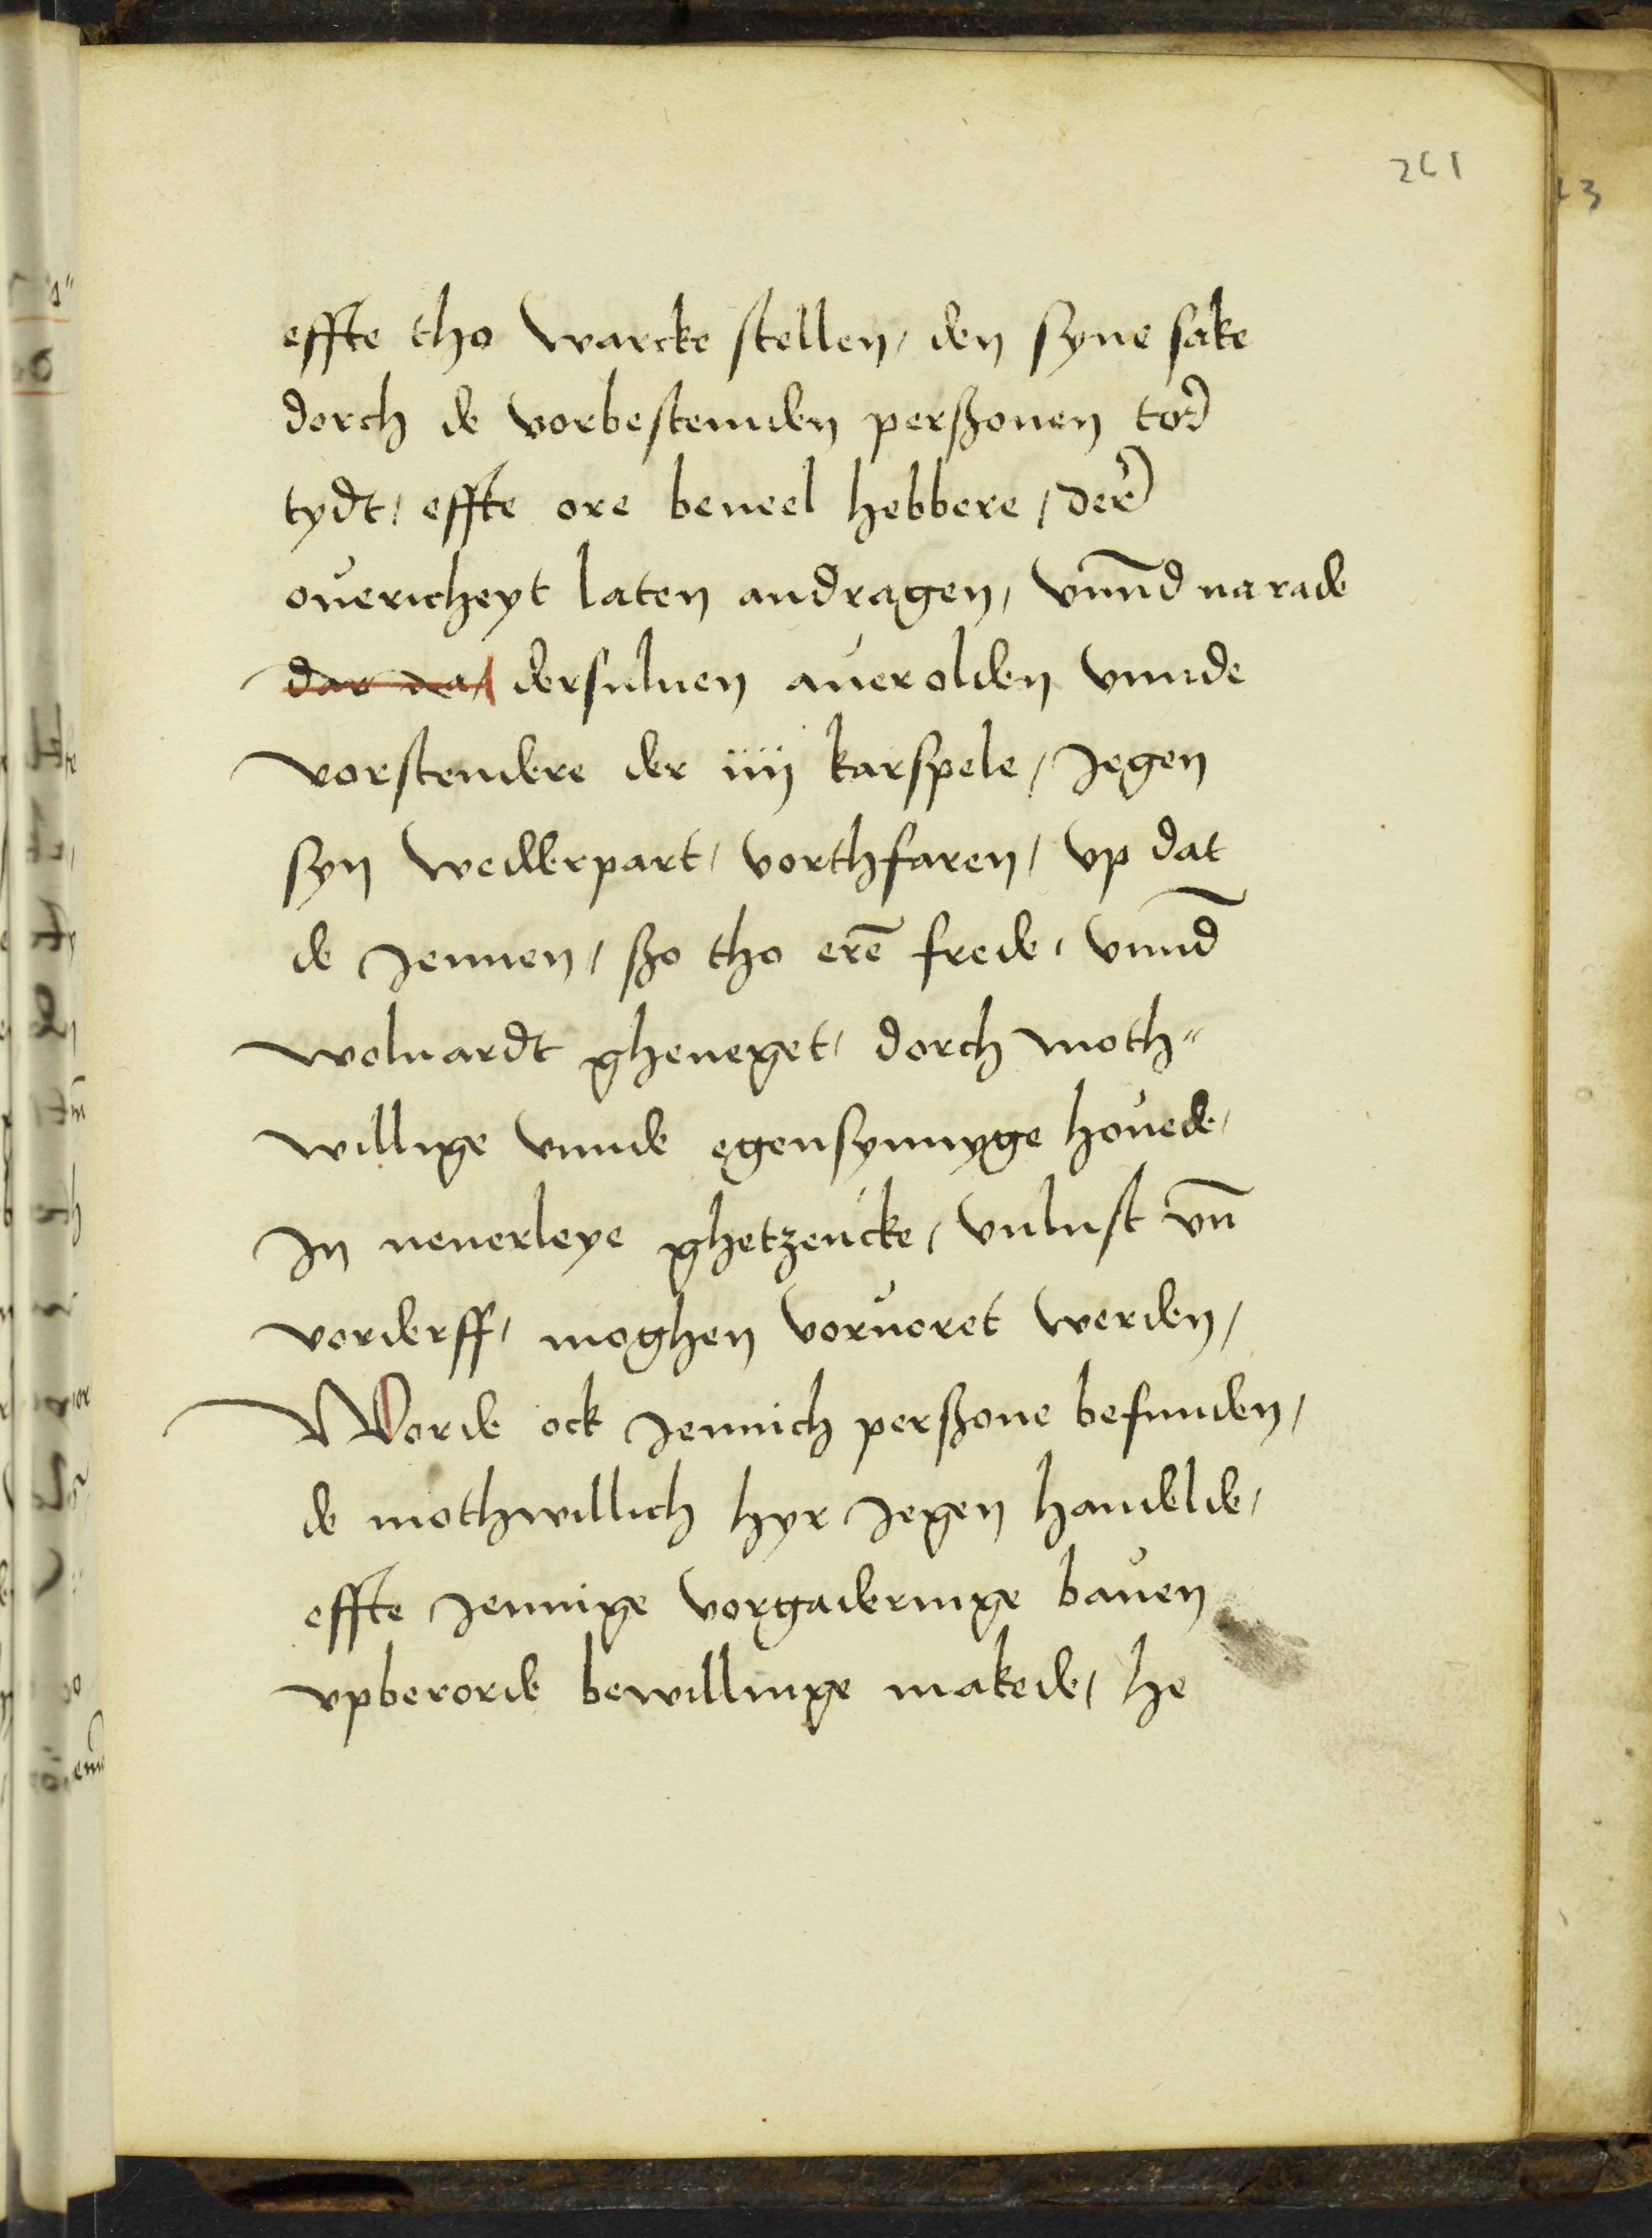 261
effte tho warcke stellen, den syne sake
dorch de vorbestemden perßonen tor
tydt, effte ore beueel hebbere, der
ouericheyt laten andragen, vnnd na rade
dar na dersuluen auerolden vnnde
vorstendere der iiij karspele, Jegen
syn wedderpart, vorthfaren, vp dat
de Jennen, ßo tho erē frede, vnnd
woluardt gheneget, dorch moth"
willige vnnde egensynnyge houede,
Jn nenerleye ghetzencke, vnlust vn̄
vorderff, moghen voruoret werden,
Worde ock Jennich perßone befunden,
de mothwillich hyr Jegen handelde,
effte Jennige vorgaderinge bauen
vpberorde bewillinge makede, he